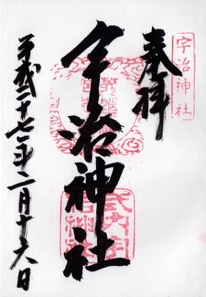 奉拝
宇治神社
宇治神社
平成二十七年二月十六日